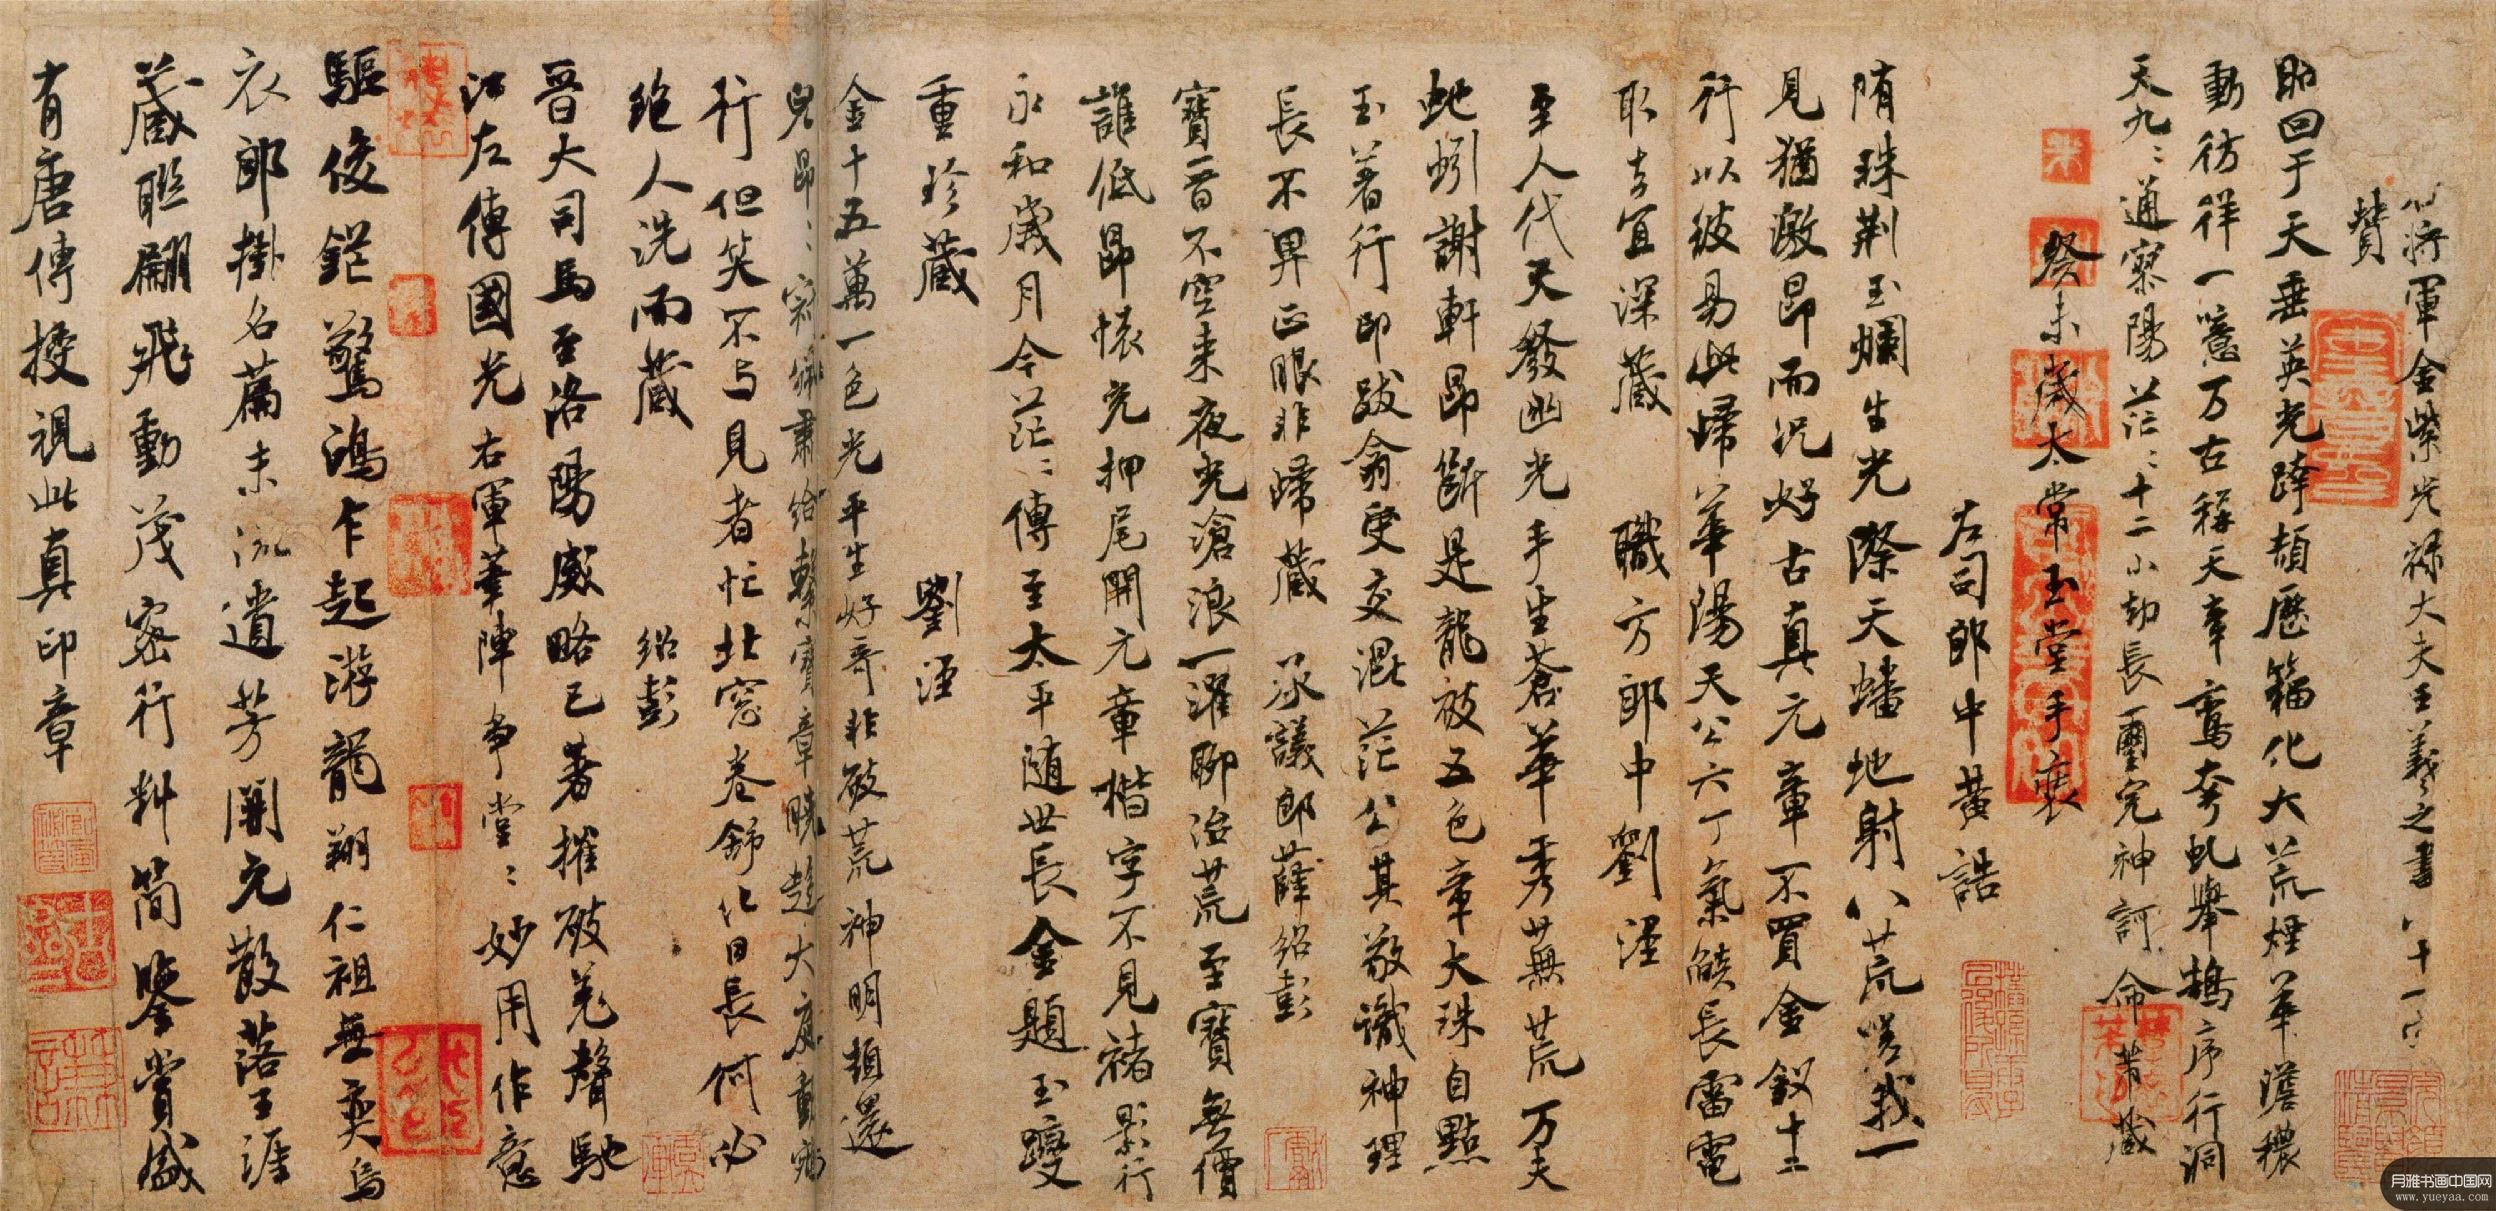 右將軍金紫光祿大夫王羲之書八十一字
贊
昭回于天垂英光跨頡歷籀化大荒煙華澹穠
動彷徉一噫万古稱天章鸞夸虬舉鵠序行洞
天九〻通寥陽茫〻十二小劫長璽完神訶命芾藏
癸未歲太常玉堂手裝
左司郎中黃誥
隋珠荆玉爛生光際天蟠地射八荒嗟我一
見猶激昂而況好古真元章不買金釵十二
行以彼易此歸華陽天公六丁氣鱗長雷電
取去宜深藏　職方郎中劉涇
至人代天發幽光手生蒼華秀無荒万夫
蚍蚓謝軒昂斷是龍被五色章大珠自點
玉著行印跋翁受交混茫公其敬識神理
長不畀正眼非歸藏　承議郎薛紹彭
寶晉不空来夜光滄浪一濯聊治荒至寶無價
誰低昂懷充押尾開元章楷字不見褚影行
永和歲月今茫〻傳至太平隨世長金題玉躞
重珍藏　劉涇
金十五萬一色光平生好奇非破荒神明頓還
行但笑不与見者忙北窓卷舒化日長何必
絶人洗而藏　紹彭
晉大司馬至洛陽威略已著摧破羌聲馳
江左傳國光右軍筆陣争堂〻妙用作意
驅俊鋩驚鴻乍起游龍翔仁祖無奕烏
衣郎掛名篇末流遺芳開元散落王涯
藏聯翩飛動茂密行料簡鑒賞盛
有唐傳授視此真印章
月雅书画中国网
www.yueyaa.com